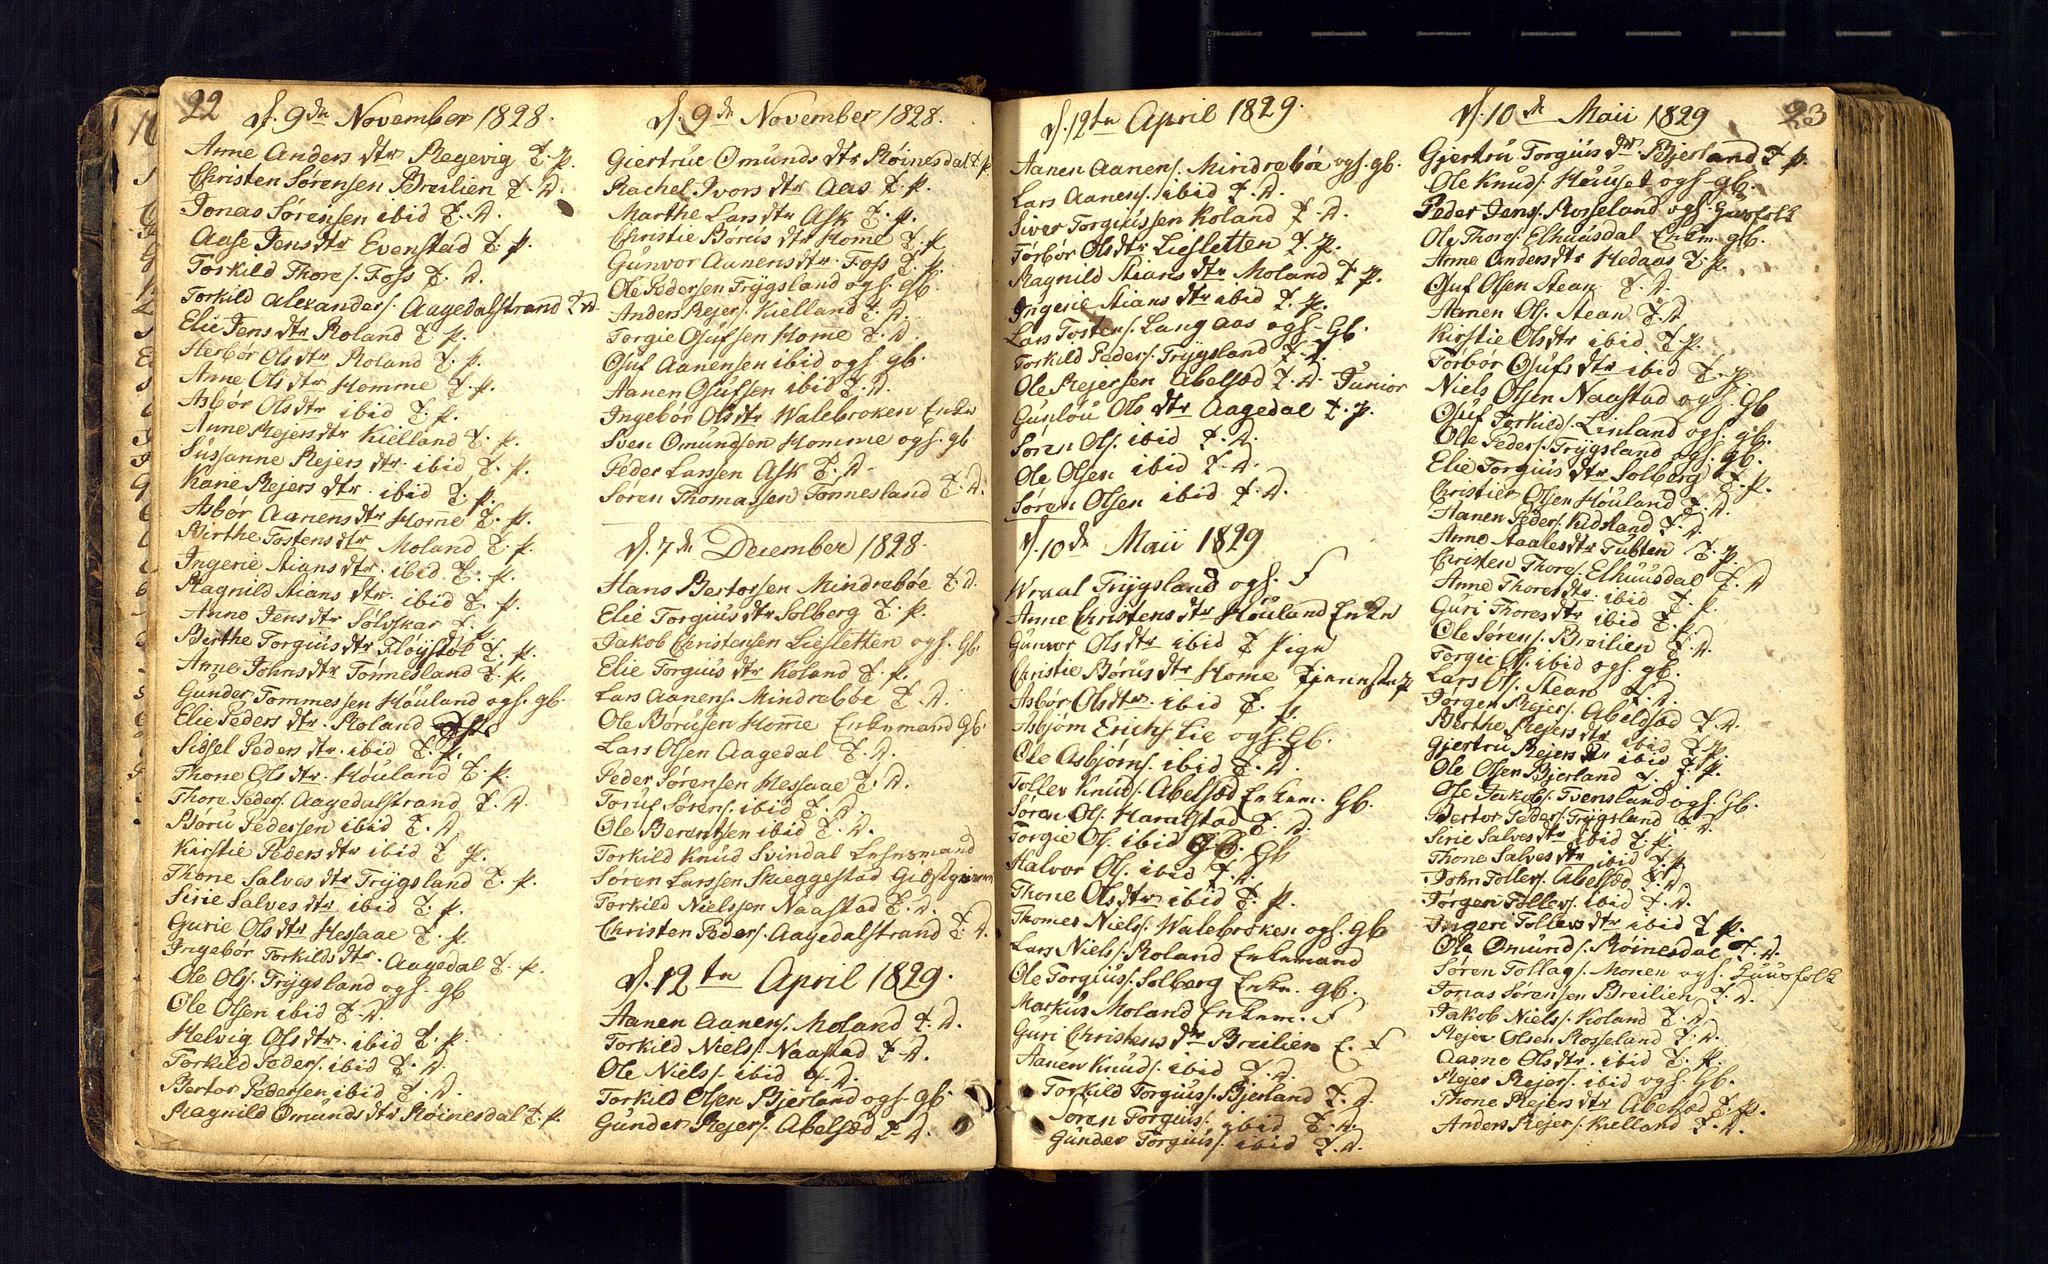 22
d. 9de November 1828.
Anne Anders dtr Regevig T. p.
Christen Sørensen Breilien T. D.
Jonas Sørensen ibid T. D.
Aase Jens dtr Evenstad T. p.
Torkild Thores. Foss T. D.
Torkild Alexanders. Aagedalstrand T. D.
Elie Jens dtr Roland T. p.
Herbør Ols dtr Roland T. p.
Anne Ols dtr Homme T. p.
Asbør Ols dtr ibid T. p.
Anne Rejers dtr Kielland T. p.
Sussanne Rejers dtr ibid T. p.
Kane Rejers dtr ibid T. p.
Asbør Aanens dtr Home T. p.
Birthe Tostens dtr Moland T. p.
Ingerie Stians dtr ibid T. p.
Ragnild Stians dtr ibid T. p.
Anne Jens dtr Sølvskar T.
Berthe Torgius dtr Fløystøl T. p.
Anne Johns dtr Tønnesland T. p.
Gunder Tommessen Høuland ogh. gb.
Elie Peders dtr Roland
Sidsel Peders dtr. ibid T. p.
Thone Ols dtr. Høuland T. p.
Thore Peders. Aagedalstrand T. D.
Børu Pedersen ibid T. D.
Kirstie Peders dtr ibid T. p.
Thone Salves dtr Trÿgsland T. p.
Sirie Salves dtr ibid T. p.
Gurie Ols dtr Hessaae T. p.
Ingebør Torkilds dtr. Aagedal T. p.
Ole Ols. Trÿgsland ogh. gb
Ole Olsen ibid T. D.
Helvig Ols dtr. ibid T. p.
Torkild Peders. ibid T. D.
Bertor Pedersen ibid T. D.
Ragnild Omunds dtr Røinesdal T. p
d. 9de November 1828.
Giertrue Omunds dtr Røinesdal T. p
Rachel Ivors dtr Aas T. p.
Marthe Lars dtr Ask T. p.
Christie Børus dtr Home T. p
Gunvor Aanens dtr Foss T. p.
Ole Pedersen Trÿgsland ogh. gb.
Anders Rejers. Kielland T. D.
Torgie Ojufsen Home T. D
Ojuf Aanensen ibid ogh. gb.
Aanen Ojufsen ibid T. D.
Ingebør Ols dtr Walebroken Enke
Sven Omundsen Homme ogh. gb
Peder Larssen Ask T. D.
Søren Thomassen Tønnesland T. D.
d. 7de December 1828.
Hans Bertorsen Mindrebøe T. D.
Elie Torgius dtr Solberg T. p.
Jakob Christensen Liesletten ogh. Gb.
Elie Torgius dtr Koland T. p.
Lars Aanens. Mindrebøe T. D.
Ole Børusen Home Enkemand Gb.
Lars Olsen Aagedal T. D.
Peder Sørensen Hessaae T. D.
Toruf Sørens. ibid T. D.
Ole Berentsen ibid T. D.
Torkild Knud Svindal Lehnsmand
Søren Larssen Skieggestad
Torkild Nielssen Naastad T. D.
Christen Peders. Aagedalstrand T. D.
d. 12te April 1829.
Aanen Aanens. Moland T. D.
Torkild Niels. Naastad T. D.
Ole Niels. ibid T. D.
Torkild Olsen Bjerland ogh. gb.
Gunder Rejers. Abelsød T. D.
d. 12te April 1829.
Aanen Aanens. Mindrebøe ogh. gb.
Lars Aanens. ibid T. D.
Siver Torgiussen Koland T. D.
Torbør Ols dtr Liesletten T. p.
Ragnild Stians dtr Moland T. p.
Ingerie Stians dtr ibid T. p.
Lars Tostens. Lang aas ogh. Gb.
Torkild Peders. Trÿgsland T. D.
Ole Rejersen Abelsød T. D. Junior
Gunlou Ols dtr Aagedal T. p.
Søren Ols. ibid T. D.
Ole Olsen ibid T. D.
Søren Olsen ibid T. D.
d. 10de Maii 1829
Wraal Trÿgsland ogh. F
Anne Christens dtr Høuland Enke
Gunvor Ols dtr ibid T. Pige
Christie Børus dtr Home
Asbør Ols dtr. ibid T. p.
Asbjøm Erichs. Lie ogh. Gb.
Ole Asbjørns. ibid T. D.
Tollev Knuds. Abelsød Enkem. Gb.
Søren Ols. Harastad T. D.
Torgie Ols. ibid Gb
Halvor Ols. ibid T. D.
Thone Ols dtr ibid T. p.
Thomes Niels. Walebroken ogh. gb
Lars Niels. Roland Enkemand
Ole Torgius. Solberg Enke. gb.
Markus Moland Enkem. F
Guri Christens dtr Breilien E. F
Aanen Knuds. ibid T. D.
Torkild Torgius. Bjerland T. D.
Søren Torgius. ibid T. D.
Gunder Torgius. ibid T. D.
23
d. 10de Maii 1829
Gjertru Torgius dtr Bjerland T. p.
Ole Knuds. Høuset ogh. gb.
Peder Jens. Rosseland ogh. Huusfolk
Ole Thores. Elhuusdal Enkem. gb.
Anne Anders dtr Hedaas T. p.
Ojuf Olsen Stean T. D.
Aanen Ols. Stean T. D
Kirstie Ols dtr ibid T. p.
Torbør Ojufs dtr ibid T. p.
Niels Olsen Naastad ogh. Gb
Ojuf Torkilds. Linland ogh. gb.
Ole Peders. Trÿgsland ogh. gb.
Elie Torgius dtr Solberg T. p.
Christier Olsen Høuland T. D.
Aanen Peders. Kidsland T. D
Anne Staales dtr Tubten T. p.
Christen Thores. Elhuusdal T. D
Anne Thores dtr ibid T. p.
Guri Thores dtr ibid T. p.
Ole Sørens. Breilien T. D.
Torgie Ols. ibid ogh. gb.
Lars Ols. Stean T. D.
Jørgen Rejers. Abelsød T. D.
Berthe Rejers dtr ibid T. p.
Gjertru Rejers dtr ibid T. p.
Ole Olsen Bjerland T. D.
Ole Jakobs. Tvensland ogh. Gb.
Bertor Peders. Trÿgsland T. D.
Sirie Salves dtr ibid T. p.
Thone Salves dtr ibid T. p
John Tollevs. Abelsød T. D.
Jørgen Tollevs. ibid T. D.
Ingeri Tollevs dtr ibid T. p.
Ole Omunds. Røinesdal T. D.
Søren Tollags. Monen ogh. Huusfolk
Jonas Sørensen Breilien T. D.
Jakob Niels. Koland T. D.
Rejer Olsen Rosseland T. D.
Aasne Ols dtr. ibid T. p.
Rejer Rejers. ibid ogh. Gb.
Thone Rejers dtr Abelsød T. p.
Anders Rejers. Kielland T. D.